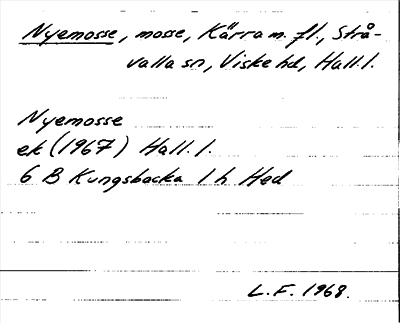 Nyemosse, mosse, Kärra m. fl., Strå-
valla sn, Viske hd, Hall. l.
Nyemosse
ek (1967) Hall. l.
6 B Kungsbacka 1 h Hed
L.F. 1968.